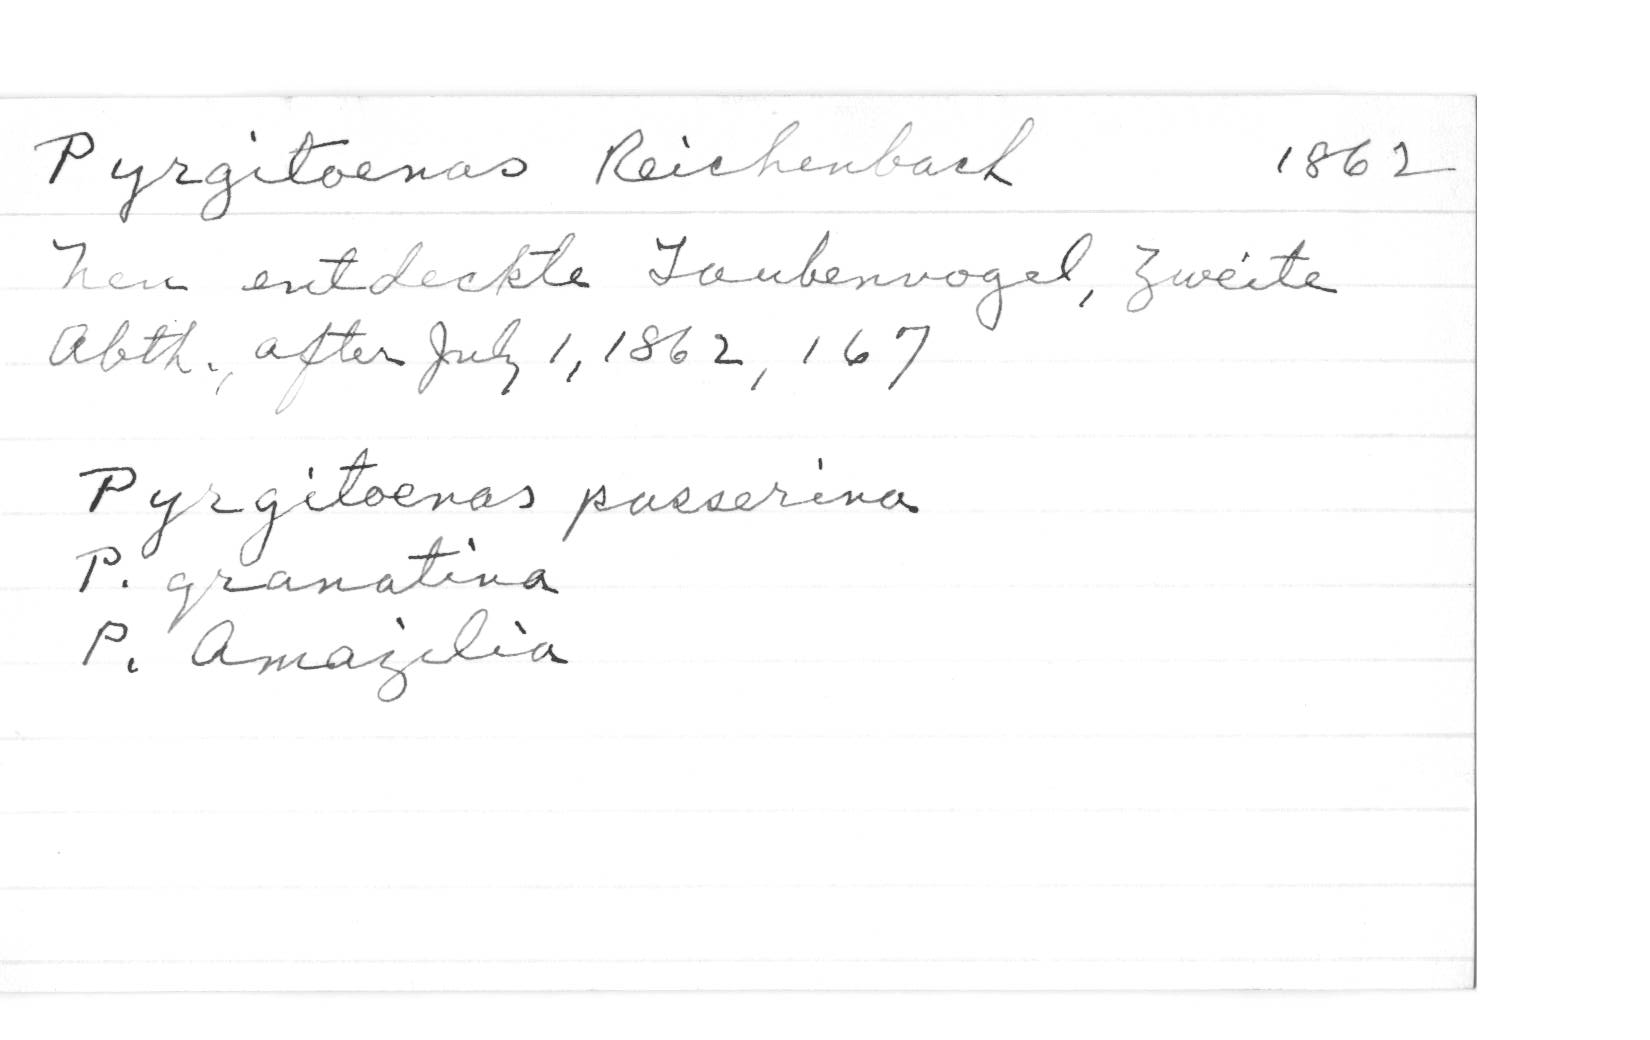 Pyrgitoenas Reichenbach 1862
Neu entdeckte Taubenvogel, Zweite
Abth., after July 1, 1862, 167
Pyrgitoenas passerina
P. granatina
P. Amazilia